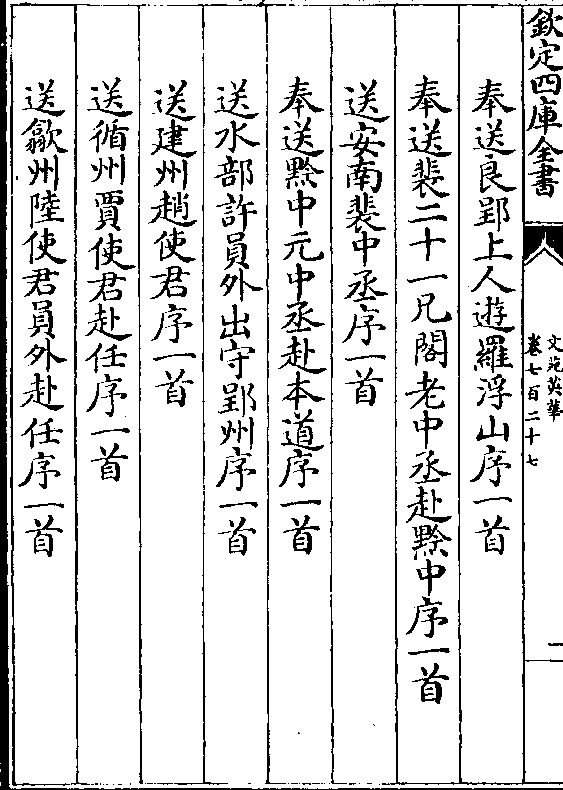 欽定四庫全書
文苑英華
卷七百二十七
一
奉送良郢上人遊羅浮山序一首
奉送裴二十一兄閣老中丞赴黔中序一首
送安南裴中丞序一首
奉送黔中元中丞赴本道序一首
送水部許員外出守郢州序一首
送建州趙使君序一首
送循州賈使君赴任序一首
送歙州陸使君員外赴任序一首